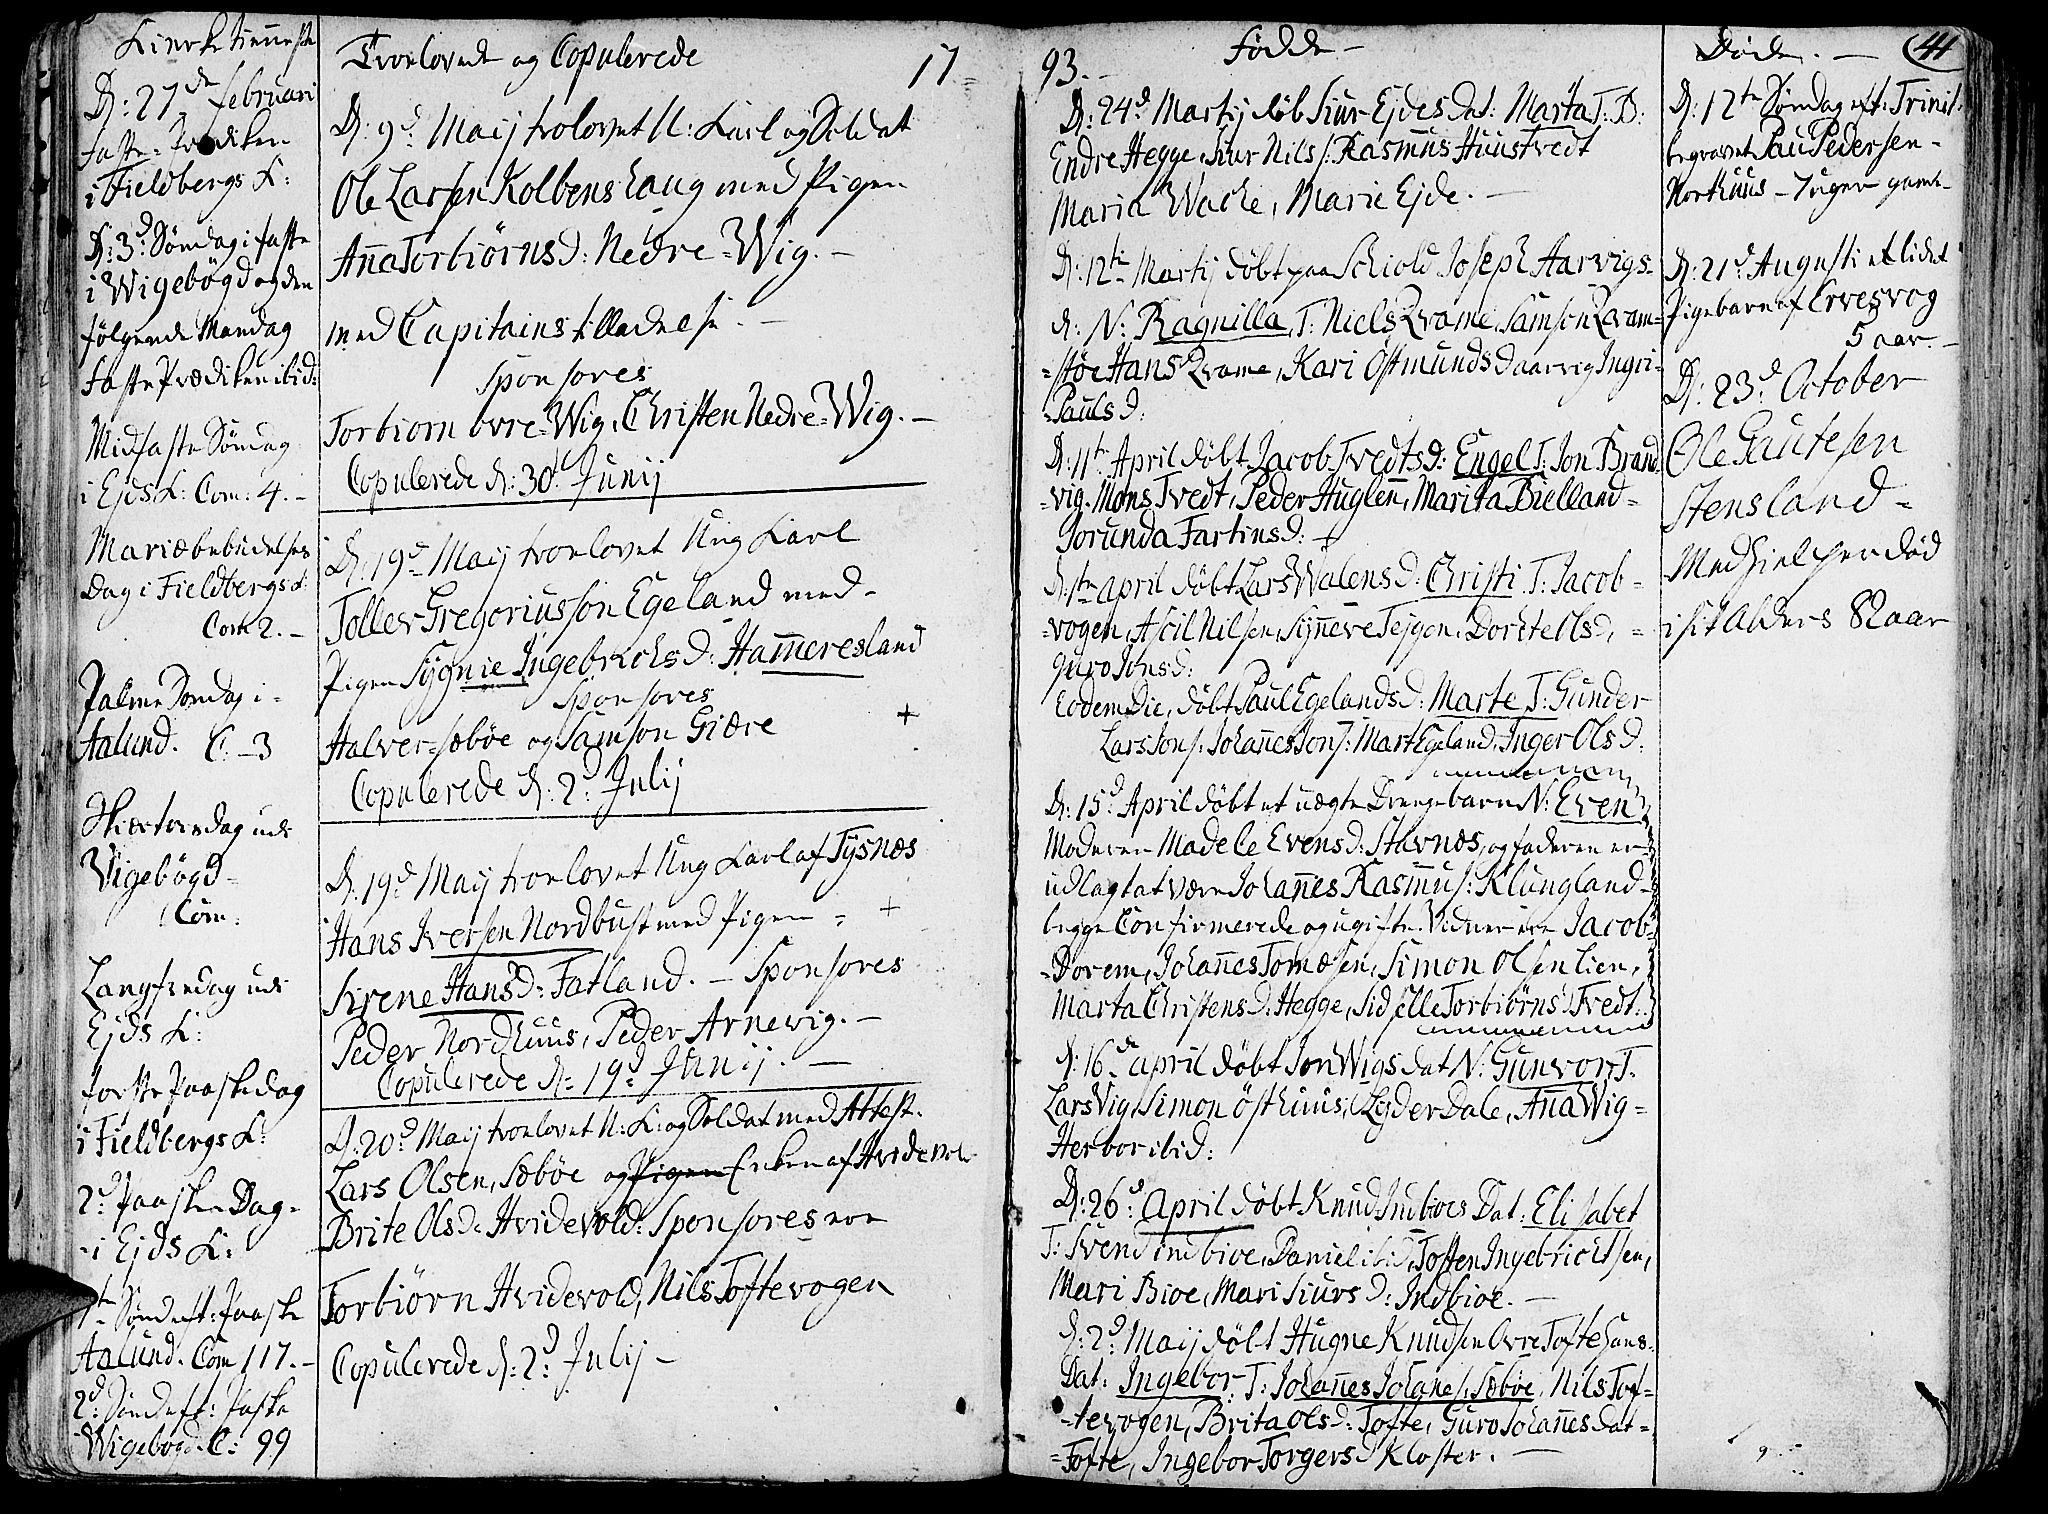 Kirketienneste
D: 27de februari
faste-Prædiken
i Fieldbergs K:
D: 3d: Söndag i faste
i Wigebögd og den
følgende Mandag
faste Prædiken ibid:
Midfaste Söndag
i Ejds K: Com: 4.-
Mariæ bebudelses
Dag i Fieldbergs K:
Com 2.-
Palme Söndag i-
Aalund. C.-3
Skiertorsdag udi
Wigebögd-
Com:
Langfredag udi
Ejds K:
forste Paaskedag
i Fieldbergs K:
2d: Paaske Dag-
i Ejds K:
1te Sönd eft: Paaske
Aalund. Com 117.-
2d: Sönd eft: Paske
Wigebogd. C: 99
Troelovede og Copulerede
17
D: 9d Maij trolovet U: Karl og Soldat
Ole Larsen Kolbenshaug med Pigen
Aña Torbiörns D: Nedre=Wig.-
med Capitains tilladelse.-
Sponsores
Torbiorn övre=Wig, Christen Nedre=Wig.-
Copulerede d: 30d Junij
D: 19d Maij troelovet Ung Karl
Tollev Gregoriusson Egeland med-
Pigen Sygnie Ingebrichs D: Hameresland
Sponsores
Halver=sæböe og Samson Giære +
Copulerede d: 2d: Julij
D. 19d Maij troelovet Ung Karl af Tysnæs
Hans Iversen Nordbust med Pigen = +
Sirene Hans D: Fatland.- Sponsores
Peder Nordhuus, Peder Arnevig.-
Copulerede d: 19d Junij.-
D: 20d Maij troelovet U: K: og Soldat med Attest.
Lars Olsen, Sæböe og Pigen Enken af Hvidevold
Brite Ols D: Hvidevold: Sponsores ere
Torbiörn Hvidevold, Nils Toftevogen
Copulerede d: 2d: Julij-
93.-
födde-
D: 24d Martij döb Siur Ejdes Dat: Marta T: B:
Endre Hegge, Siur Nils s: Rasmus Huustvedt
Maria Wache, Marie Ejde.-
D: 12te Martij döbt paa Schiold Joseph Aarvigs
d: N: Ragnilla, T: Niels Qvame, Samson Qvam=
=støe Hans Qvame, Kari Östmunds D aarvig Ingri-
Pauls D:
D: 11te April döbt Jacob Tvedts D: Engel T: Jon Brand
=vig. Mons Tvedt, Peder Huglen, Marita Bielland-
Gorunda Fartins D:
d: 1te april döbt Lars Walens D: Christi T: Jacob-
=vogen, Ascil Nilsen, Syñeve Tejgen, Dorite Ols D, =
Guro Jons D:
Eodem Die, döbt Paul Egelands D: Marte T: Gunder
Lars Jons: Johañes Jons: Mart Egeland, Inger Ols D:
D: 15d April döbt et uægte Drengebarn N: Even
Moderen Madele Evens D: Stavnæs, og faderen er-
udlagt at være Johañes Rasmus: Klungland-
begge Confirmerede og ugifte. Vidner ere Jacob=
=Dorem, Johañes Tomæsen, Simon Olsen Lien,
Marta Christens D: Hegge, Sidselle Torbiörns D Tvedt.
d: 16de april döbt Jon Wigs Dat N: Gunvor T.
Lars Vig, Simon östhuus, Lyder Dale, Aña Wig=
Herbor ibid:
D: 26d: April döbt Knud Indbioes Dat: Elisabet
T: Svend indbioe, Daniel ibid, Tosten Ingebrichtsen,
Mari Bioe, Mari Siurs D: Indbioe.-
d: 2d: Maij döbt Hugne Knudsen Ovre Toftehuns
Dat: Ingebor T: Johañes Johanes: Sæböe, Nils Tof=
=tevogen, Brita Ols D: Tofte, Guro Johañes Dat-
=Tofte, Ingebor Torgers D Kloster.-
Döde.-
41
D: 12te Söndag eft: Trinit:
begravet Pau Pedersen-
Northuus- 7 uger gaml-
D: 21d: Augusti et lidet
Pigebarn af Ervesvog
5 aar.-
D: 23d October
Ole Gautesen
Stensland-
i sit Alders 82 aar